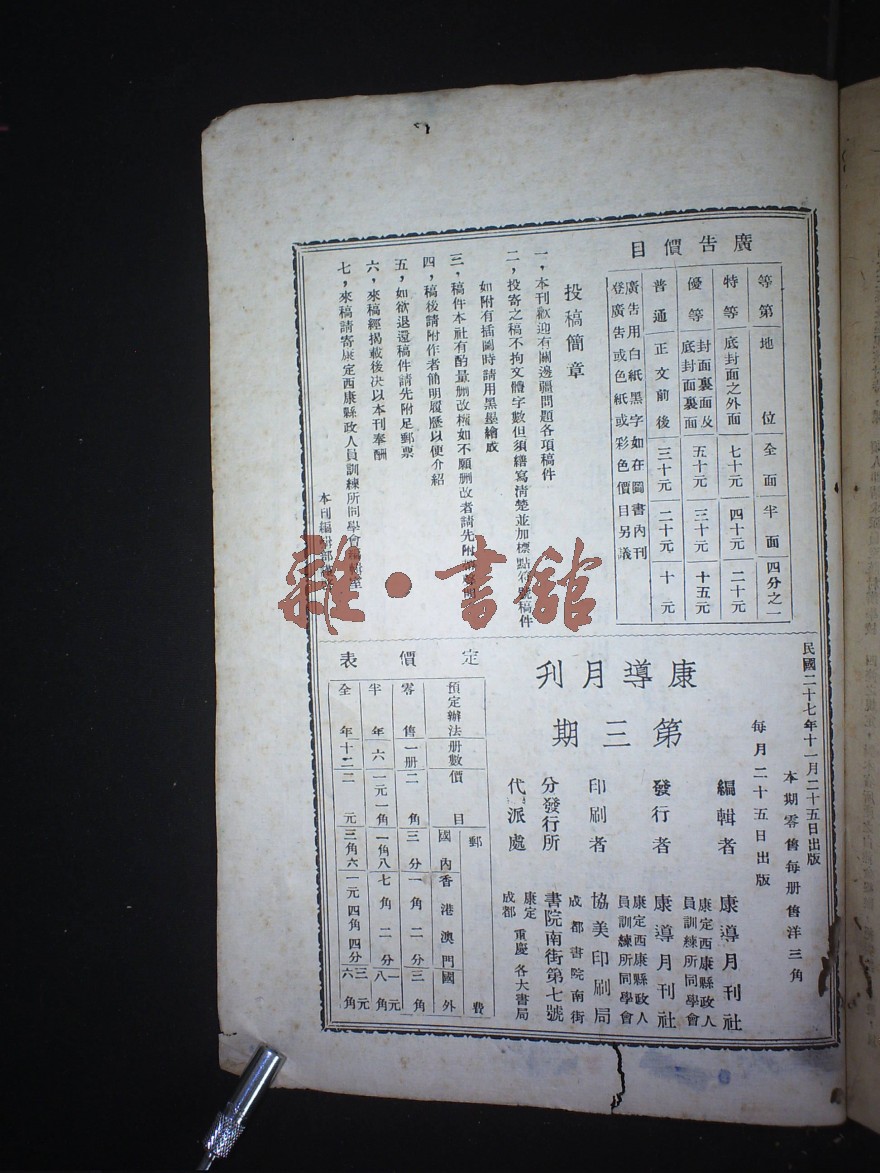 廣告價目
等第 地位 全面 半面 四分之一
特等 底封面之外面 七十元 四十元 二十元
優等 封面裏面及底封面裏面 五十元 三十元 十五元
普通 正文前後 三十元 二十元 十元
廣告用白紙黑字如在圖書內刊
登廣告或色紙或彩色價目另議
投稿簡章
一，本刊歡迎有關邊疆問題各項稿件
二，投寄之稿不拘文體字數但須繕寫清楚並加標點符號稿件
如附有插圖時請用黑墨繪成
三，稿件本社有酌量删改權如不願删改者請先附
四，稿後請附作者簡明履歷以便介紹
五，如欲退還稿件請先附足郵票
六，來稿經揭載後决以本刊奉酬
七，來稿請寄康定西康縣政人員訓練所同學會編輯室
本刊編輯部
民國二十七年十一月二十五日出版
本期零售每册售洋三角
每月二十五日出版
康導月刊
第三期
編輯者 康導月刊社
康定西康縣政人員訓練所同學會
發行者 康導月刊社
康定西康縣政人員訓練所同學會
印刷者 協美印刷局
成都書院南街
分發行所 書院南街第七號
代派處 康定 成都 重慶 各大書局
定價表
預定辦法 册數 價目 郵費
國內 香港澳門 國外
零售 一册 二角 三分 一角二分 三角
半年 六 一元一角 一角八 七角二分 一元八角
全年 十二 二元 三角六 一元四角四分 三元六角
雜·書館